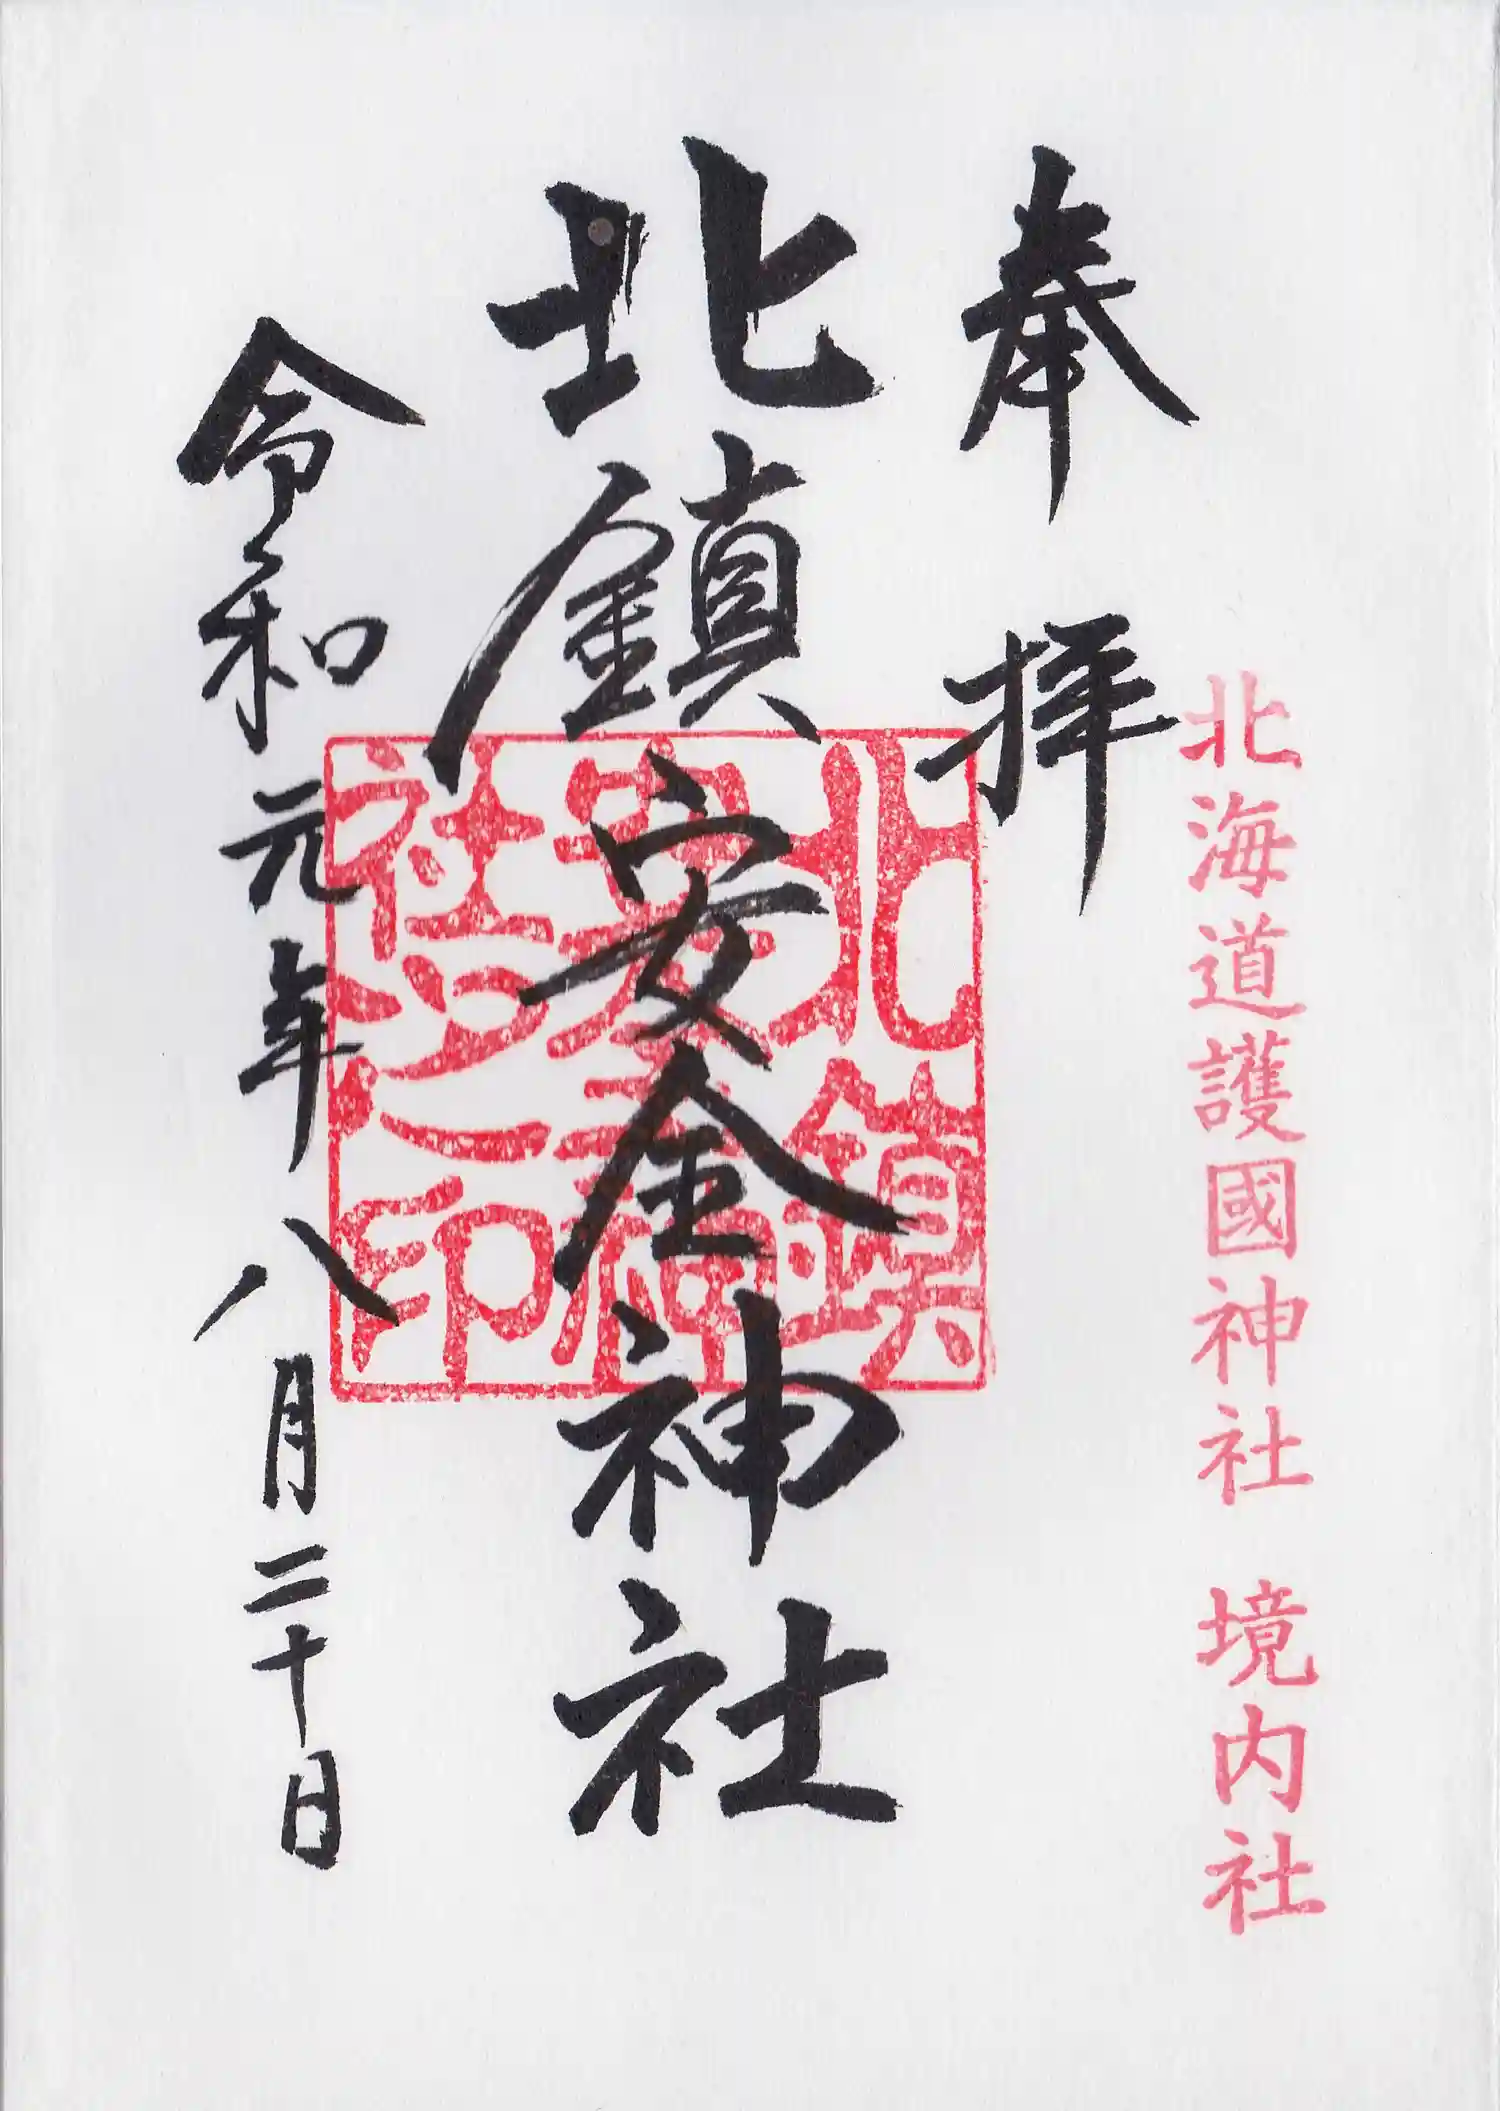 北海道護國神社 境内社
奉拝
北鎮安全神社
北鎮
安全神
社之印
令和元年八月二十日